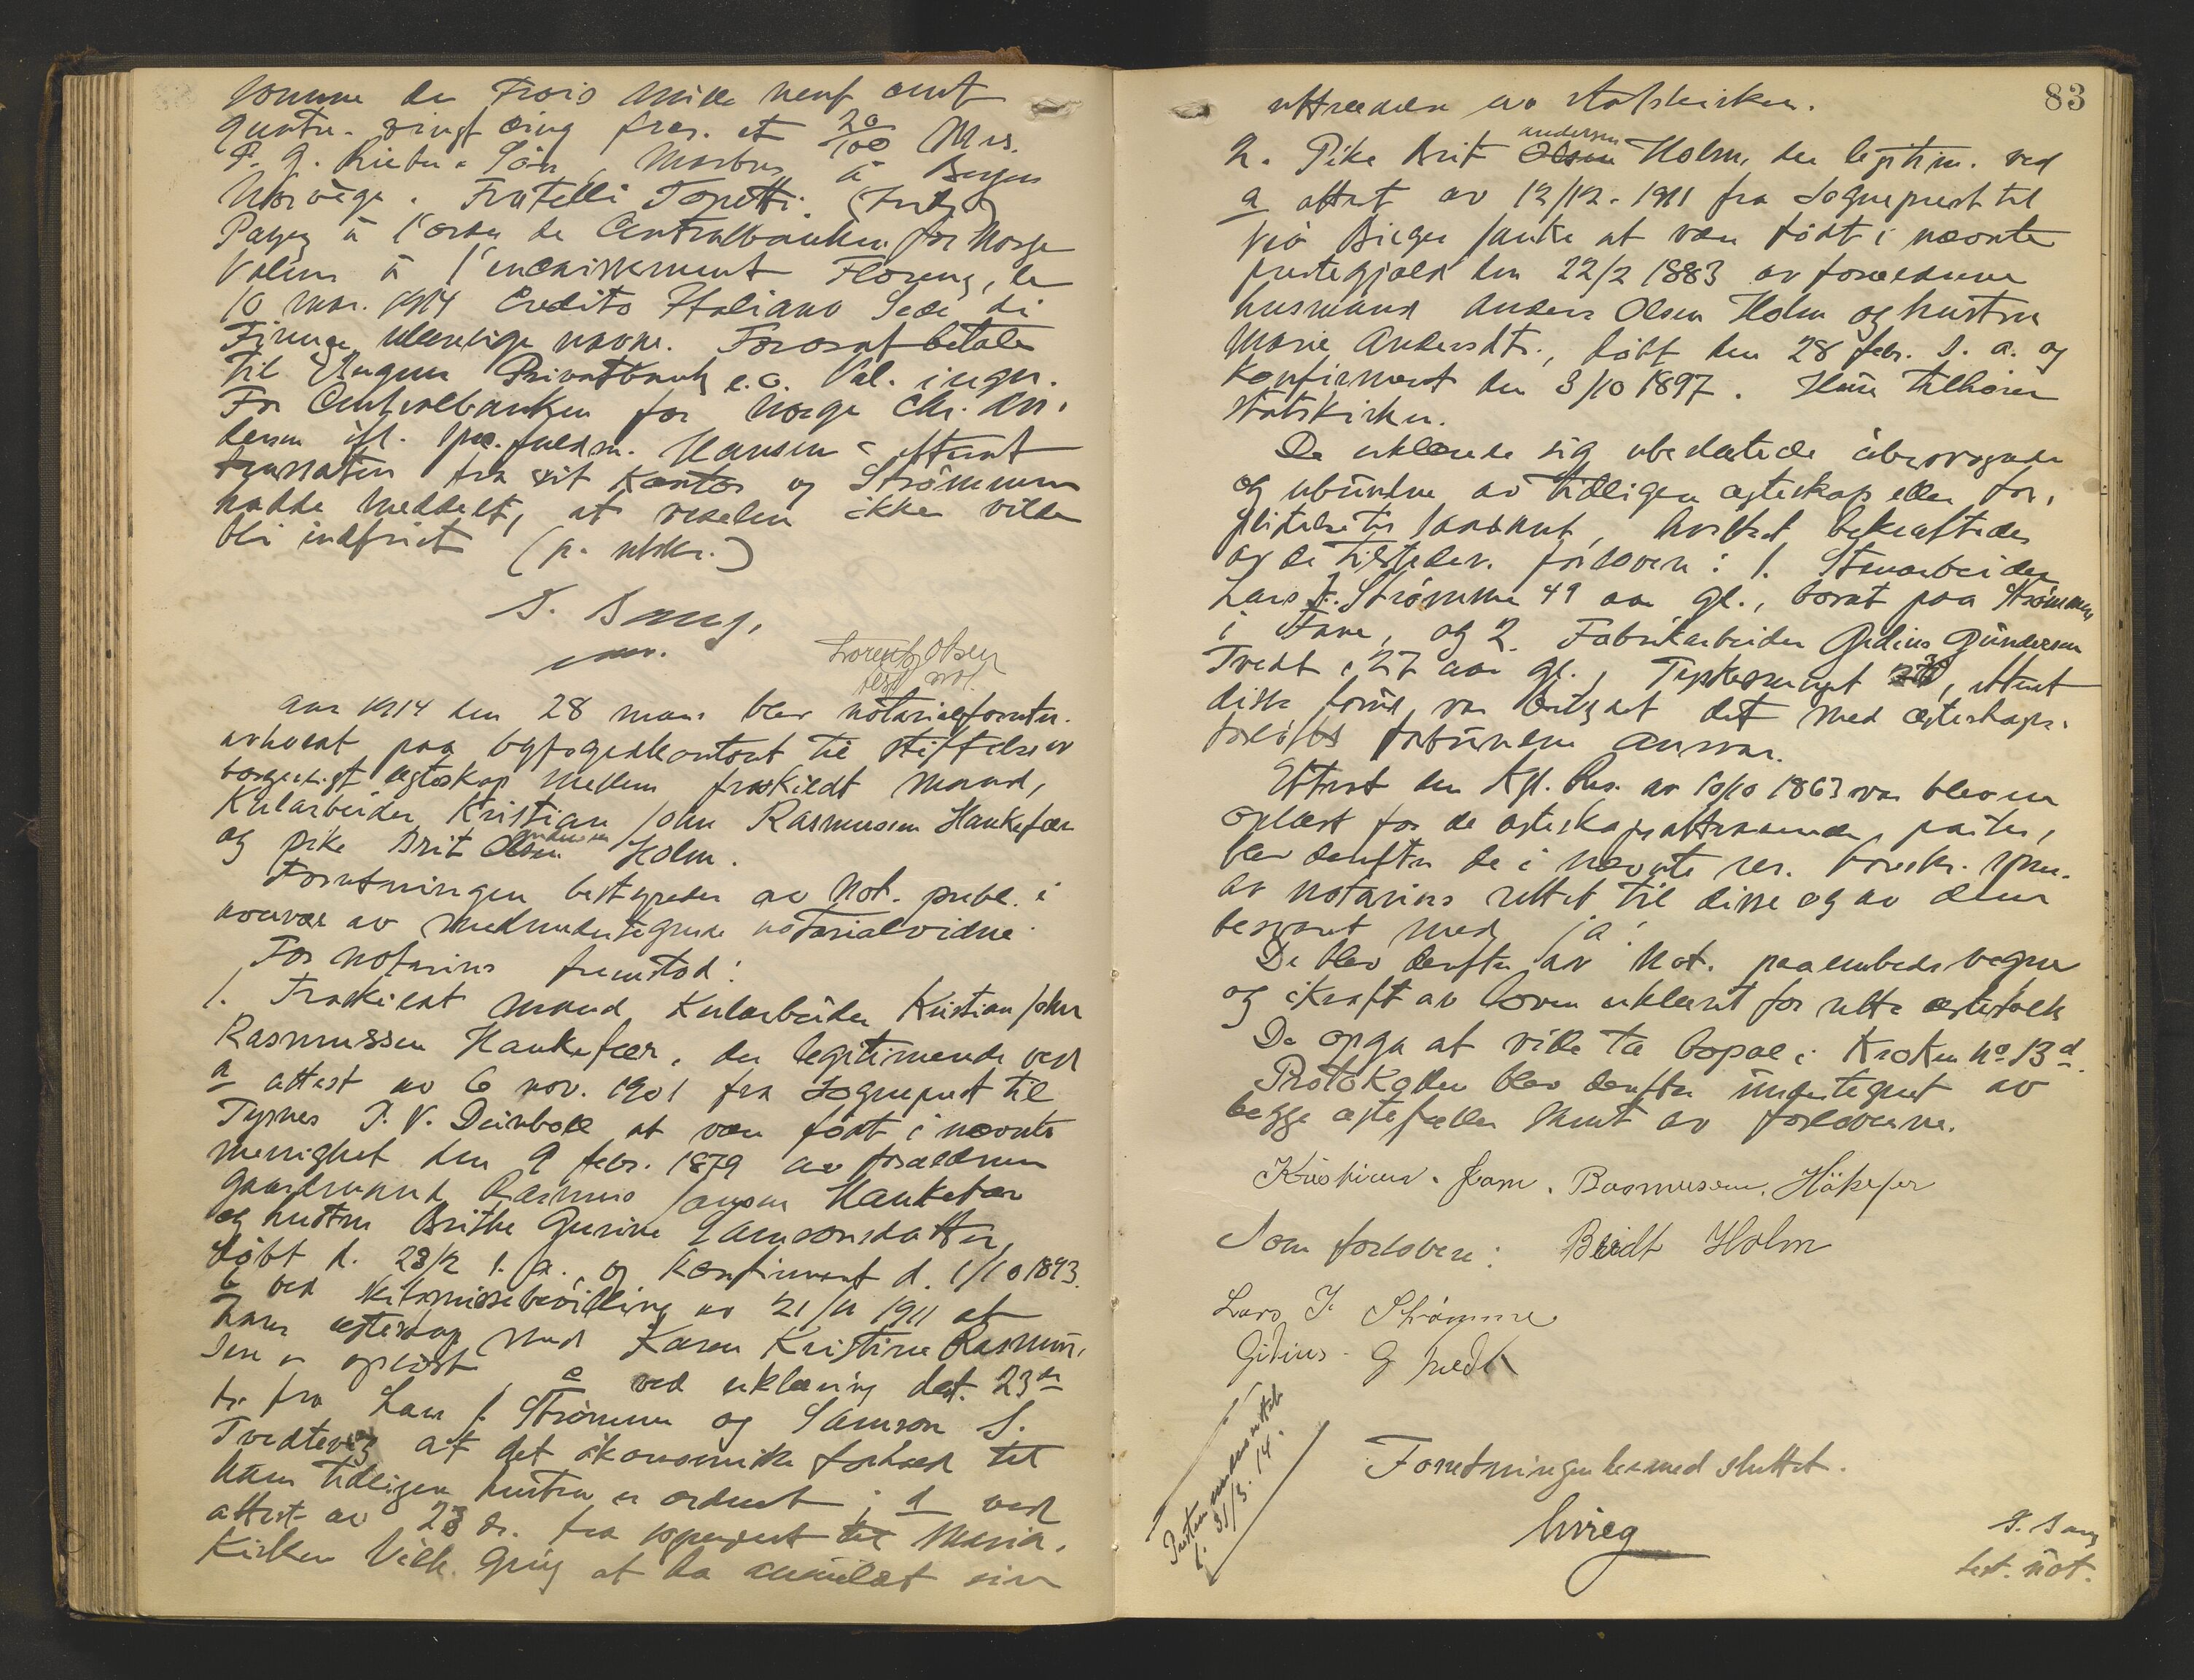 somme de trois mille neuf cent
quatre-vingt cinq frcs. et 20/100 Mrs.
P. G. Rieber & Søn, Marbus à Bergen
Norvège. Fratelli Tonetti.
Payez à l'ordre de Centralbanken for Norge
Valeur à l'encaissement Florenz, le
10 mar. 1914 Credito Italiano Sede di
Firenze ulæselige navne. Forosat betale
til Bergens Privatbank e.o. Val. i regn.
For Centralbanken for Norge Chr. An-
dersen ifl. spec. fuldm. Hansen - efterat
trassaten fra sit Kontor og Strömmen
hadde meddelt, at vexelen ikke vilde
bli indfriet (p. utskr.)
S. Bang,
Lorentz Olsen
test not.
Aar 1914 den 28 mars blev notarialforretn.
avholdt paa byfogedkontoret til stiftelse av
borgerligt egteskap mellem fraskildt mand,
Kularbeider Kristian John Rasmussen Haukefær
og pike Brit Olsen Andersen Holm.
Forretningen bestyredes av Not. publ. i
nærvær av medundertegnede notarialvidne.
For notarius fremstod:
1. Fraskildt mand, Kularbeider Kristian John
Rasmussen Haukefær, der legitimerede ved
a attest av 6 nov. 1901 fra Sogneprest til
Tysnes P. V. Deinboll at være född i nævnte
menighet den 9 febr. 1879 av forældrene
gaardmand Rasmus Jansen Haukefær
og hustru Brithe Gurine Samsonsdatter,
döbt d. 23/2 s. a. og Konfirmert d. 1/10 1893.
b ved skilsmissebevilling av 21/11 1911 at
hans egteskap med Karen Kristine Rasmus-
sen er oplöst, c ved erklæring dat. 23de
ds. fra Lars J. Strömme og Samson S.
Tvedtevig at det økonomiske forhold til
hans tidligere hustru er ordnet; d ved
attest av 23 ds. fra sogneprest til Maria-
Kirken Vilh. Grieg at ha anmeldt sin
83
uttrædelse av statskirken.
2. Pike Brit Olsen Andersen Holm, der legitim. ved
a attest av 12/12. 1911 fra Sogneprest til
Birger at være född i nævnte
prestegjæld den 22/2 1883 av forældrene
husmand Anders Olsen Holm og hustru
Marie Andersdtr., döbt den 28 febr. s. a. og
konfirmert den 3/10 1897. Hun tilhører
statskirken.
De erklærede sig ubeslægtede
og ubundne av tidligere egteskap eller for-
pligtelse til saadant, hvilket bekræftedes
av de tilstedev. forlovere: 1. Stenarbeider
Lars J. Strömme 49 aar gl., boende paa Strömmen
i Fane, og 2. Fabrikarbeider Gidius Gundersen
Tvedt, 27 aar gl., efterat
disse forud var betydet det med egteskaps-
forlöfte forbundne ansvar.
Efterat den Kgl. Res. av 10/10 1863 var bleven
oplæst for de egteskapsattraaende parter,
blev derefter de i nævnte res. foreskr. spm.
av notarius rettet til disse og av dem
besvaret med ja.
De blev derefter av Not. paa embeds vegne
og i kraft av loven erklæret for rette egtefolk
De opga at ville ta bopæl i Kroken No 13 d.
Protokollen blev derefter undertegnet av
begge egtefæller samt av forloverne.
Kristian. Jan. Rasmusen. Håkefer
Som forlovere: Bridt Holm
Lars J. Strömme
Gidius G Tvedt
anmeldt
d. 31/3. 14.
Forretningen hermed sluttet.
Grieg
S. Bang
test. not.